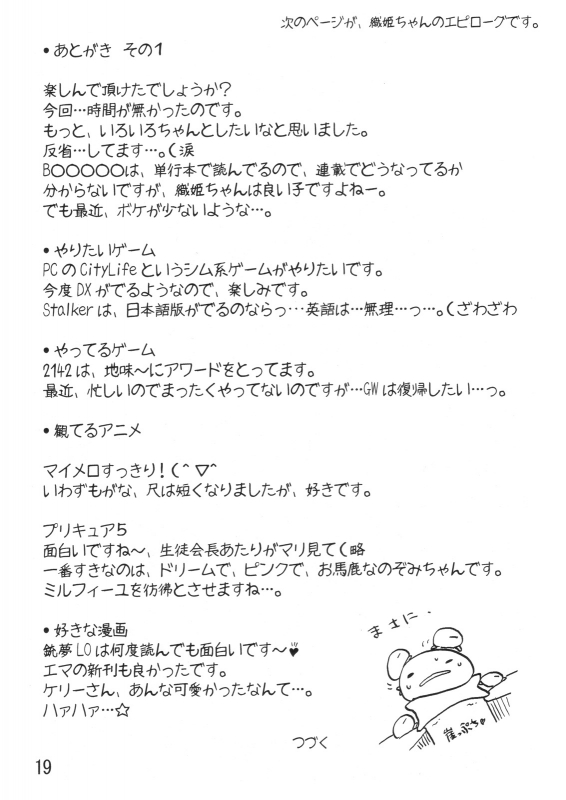 次のページが、織姫ちゃんのエピローグです。
•あとがき その1
楽しんで頂けたでしょうか?
今回…時間が無かったのです。
もっと、いろいろちゃんとしたいなと思いました。
反省…してます…。(涙
B○○○○○は、単行本で読んでるので、連載でどうなってるか
分からないですが、織姫ちゃんは良い子ですよねー。
でも最近、ボケが少ないような…。
•やりたいゲーム
PCのCityLifeというシム系ゲームがやりたいです。
今度DXがでるようなので、楽しみです。
Stalkerは、日本語版がでるのならっ…英語は…無理…っ…。(ざわざわ
•やってるゲーム
2142は、地味〜にアワードをとってます。
最近、忙しいのでまったくやってないのですが…GWは復帰したい…っ。
•観てるアニメ
マイメロすっきり!(^▽^
いわずもがな、尺は短くなりましたが、好きです。
プリキュア5
面白いですね〜、生徒会長あたりがマリ見て(略
一番すきなのは、ドリームで、ピンクで、お馬鹿なのぞみちゃんです。
ミルフィーユを彷彿とさせますね…。
•好きな漫画
銃夢LOは何度読んでも面白いです〜♥
エマの新刊も良かったです。
ケリーさん、あんな可愛かったなんて…。
ハァハァ…☆
まさに、
崖っぷちゅ
つづく
19